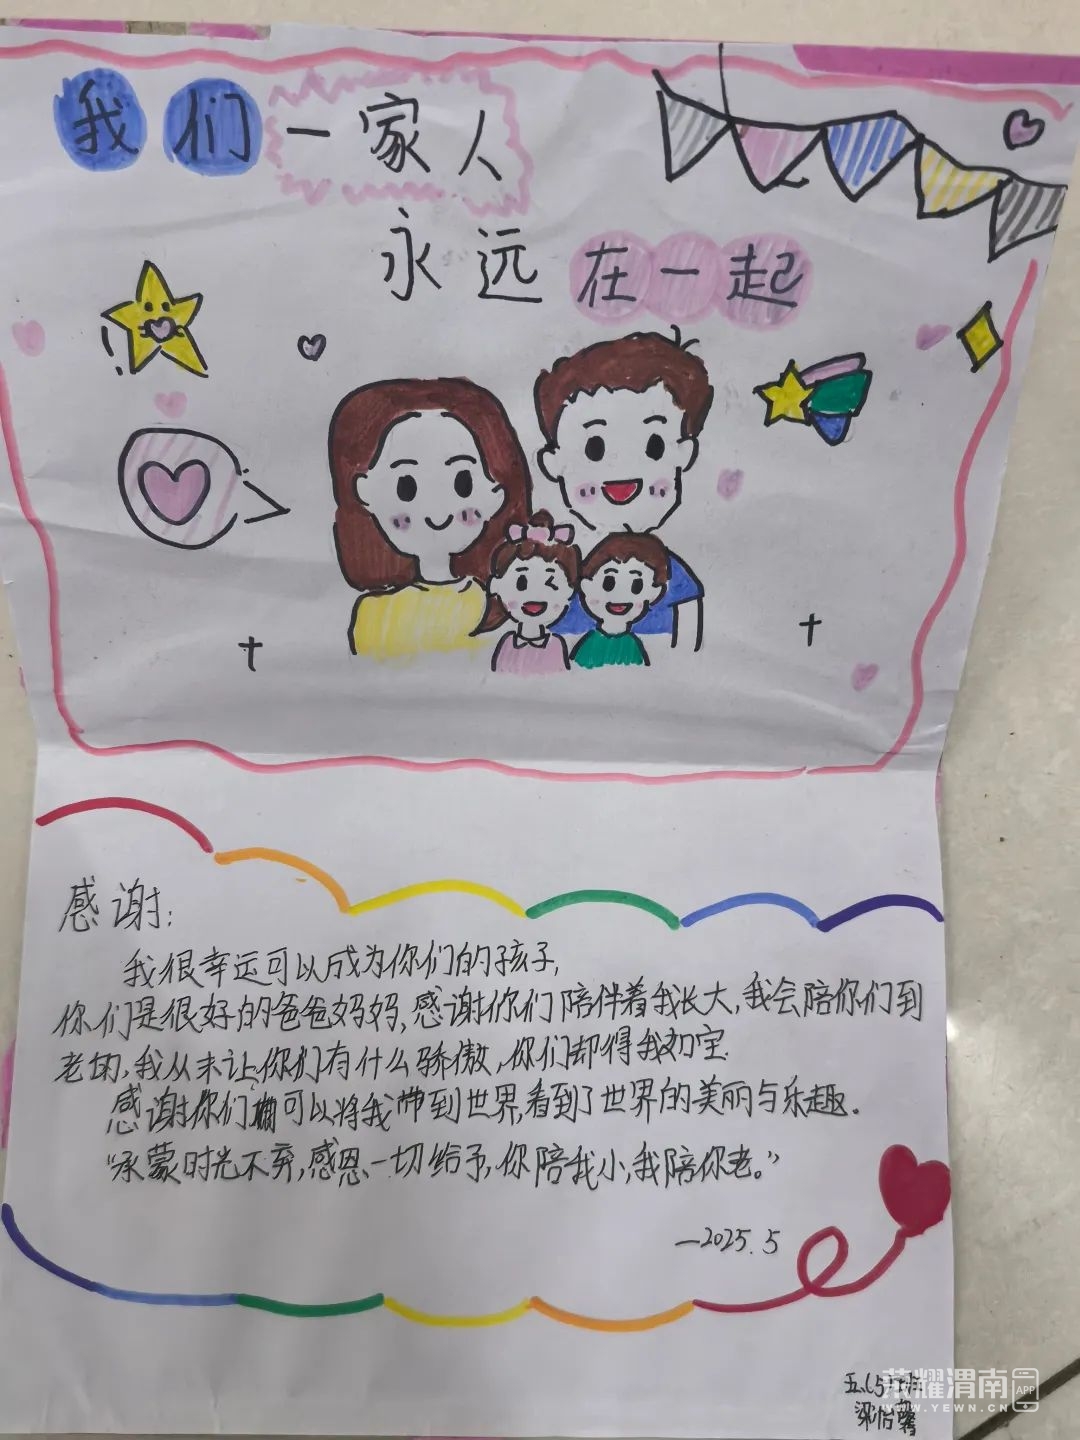 我们一家人
永远在一起
感谢:
我很幸运可以成为你们的孩子,
你们是很好的爸爸妈妈,感谢你们陪伴着我长大,我会陪你们到
老的,我从未让你们有什么骄傲,你们却得我如宝.
感谢你们可以将我带到世界,看到了世界的美丽与乐趣。
“承蒙时光不弃,感恩一切给予,你陪我小,我陪你老。”
—2025.5
五.(5)班
梁怡馨
荣耀渭南
APP
WWW.YEWN.CN